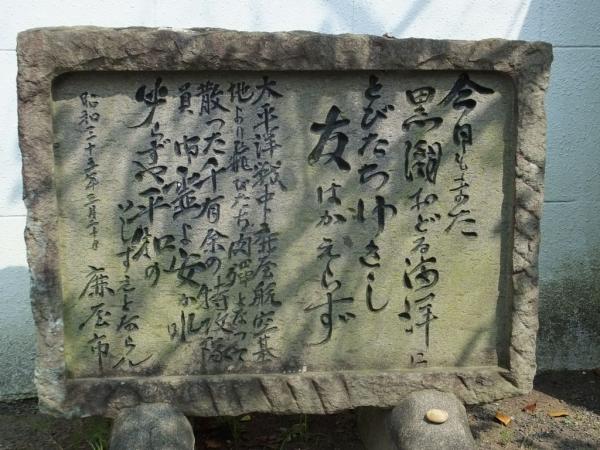 今日もまた
黒潮おどる海洋に
とびたちゆきし
友はかえらず
太平洋戦中鹿屋航空基
地より飛びたち肉弾となって
散った千有余の特攻隊
員の霊よ安かれ
必らずや平和の
いしずえとならん
昭和三十五年三月二十日
鹿屋市